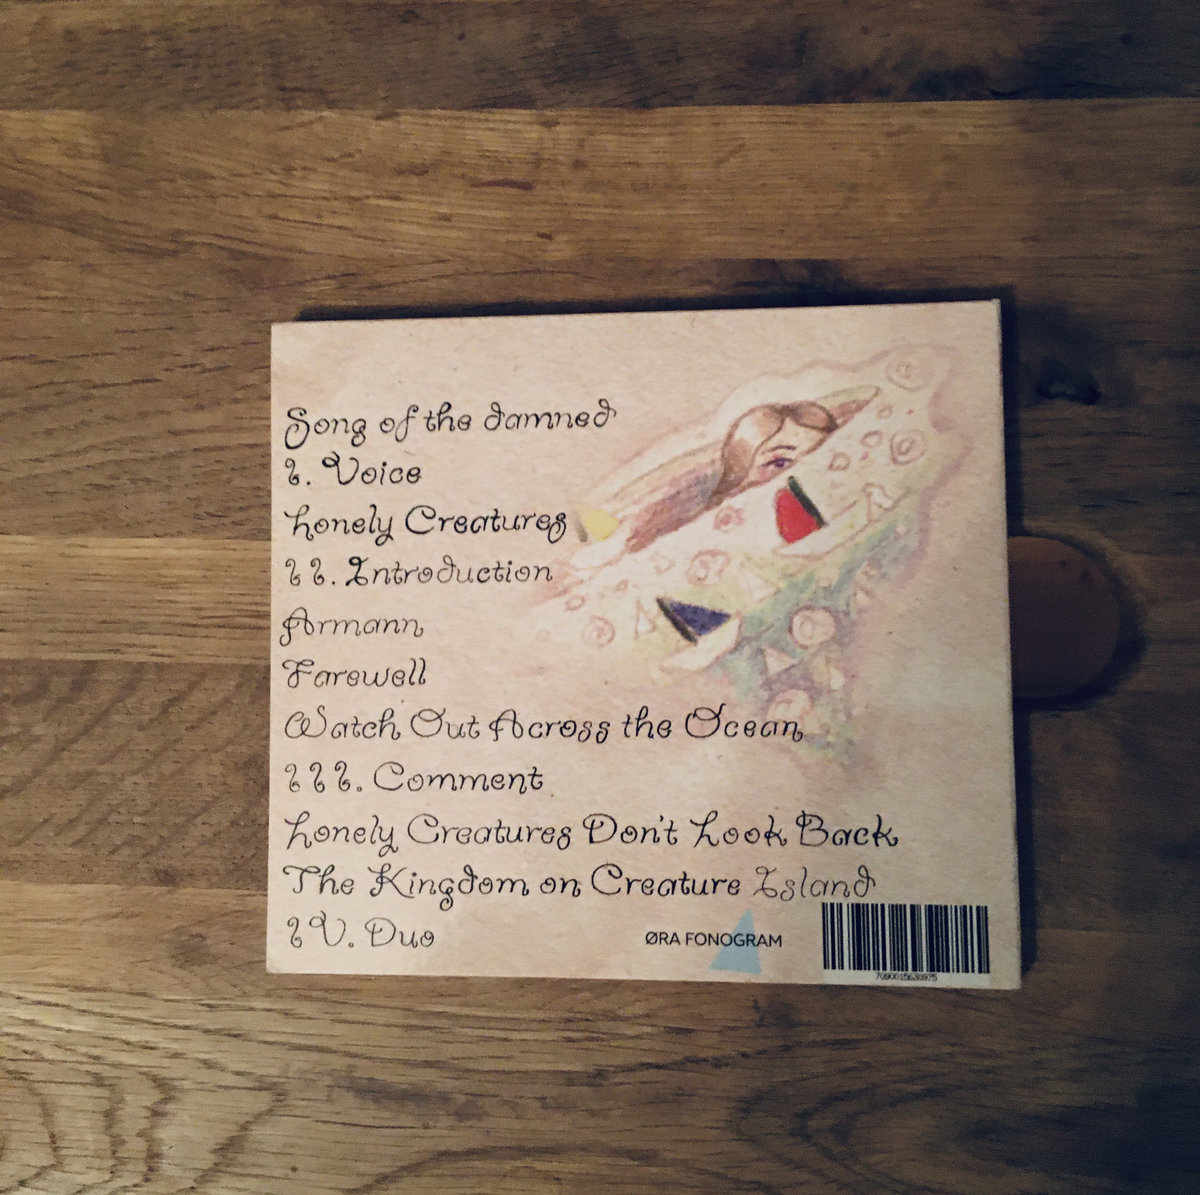 Song of the damned
I. Voice
Lonely Creatures
II. Introduction
Armann
Farewell
Watch Out Across the Ocean
III. Comment
Lonely Creatures Don't Look Back
The Kingdom on Creature Island
IV. Duo
ØRA FONOGRAM
7090015630975